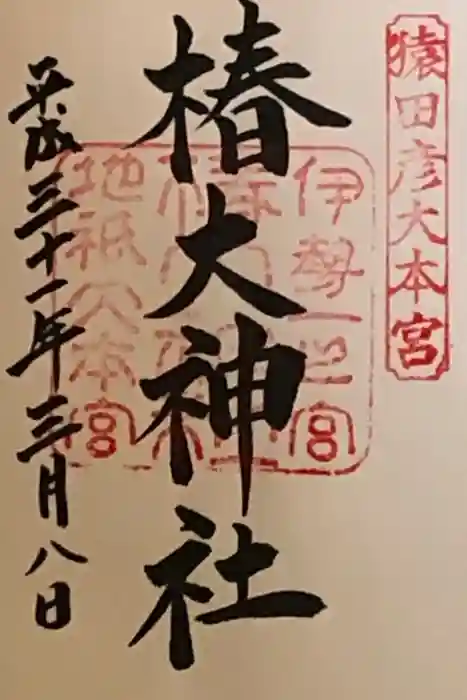 猿田彦大本宮
伊勢一之宮
椿大神社
地祇大本宮
平成三十一年三月八日